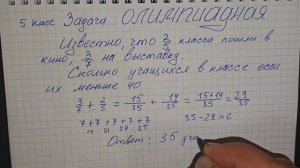 5 класс Задача ОЛИМПИАДНАЯ
Известно, что 2/5 класса пошли в
кино, 3/7 на выставку.
Сколько учащихся в классе если
их меньше 40
3/7 + 2/5 = 15/35 + 14/35 = 15+14/35 = 29/35
7+7+7+7+7 35-29=6
14 21 28 35
Ответ: 35 уча